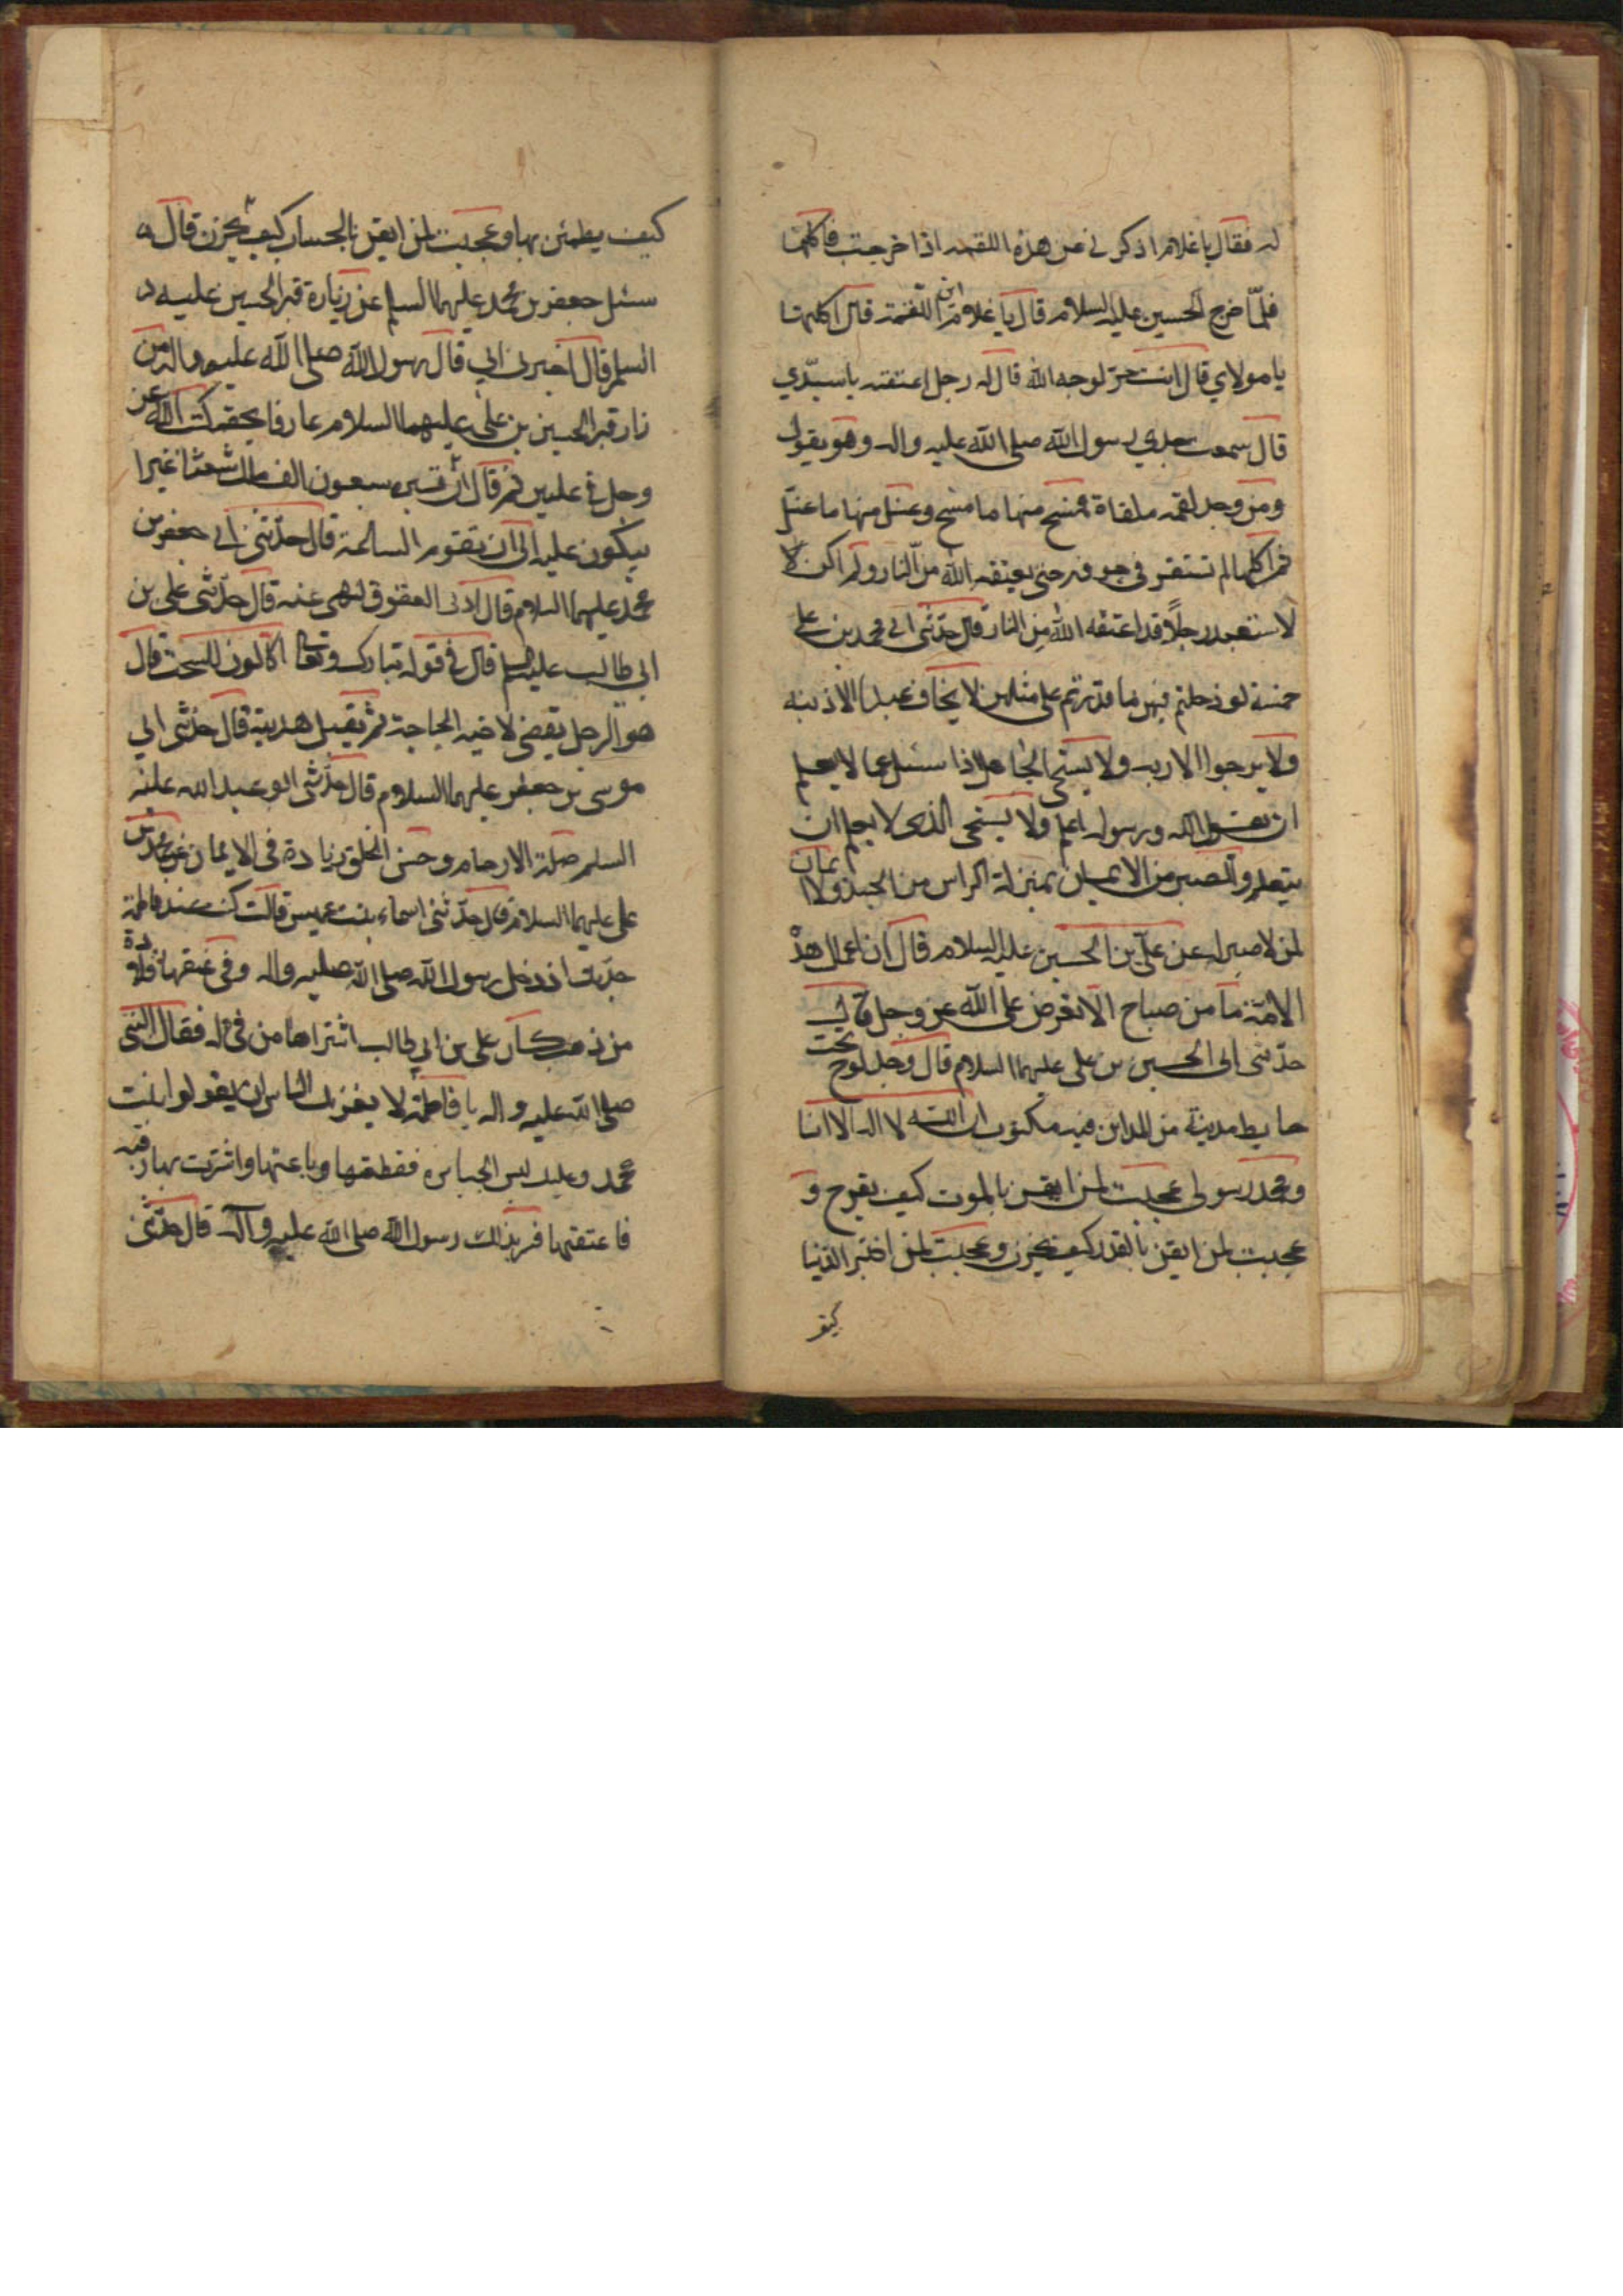 له فقال يا غلام اذكرني عن هذه اللقمه اذا خرجت فاكلها
فلمّا خرج الحسين عليه السلام قال يا غلام اين اللقمة قال اكلتها
يا مولاي قال انت حرّ لوجه الله قال له رجل اعتقته يا سيّدي
قال سمعت جدي رسول الله صلى الله عليه واله وهو يقول
ومن وجد لقمه ملقاة فمسح منها ما مسح وغسل منها ما غسل
ثم اكلها لم تستقر في جوفه حتى يعتقه الله من النار ولم اكن لا
لاستعبد رجلاً قد اعتقه الله من النار قال حدّثني ابي محمد بن علي
خمسة لو دخلتم فيهن ما قدرتم على مثلهن لا يخاف عبد الا ذنبه
ولا يرجوا الا ربه ولا يستحي الجاهل اذا سئل عما لا يعلم
ان يقول الله ورسوله اعلم ولا يستحي الذي لا يعلم ان
يتعلم والصبر من الايمان بمنزلة الراس من الجسد ولا ايمان
لمن لا صبر له عن علي بن الحسين عليه السلام قال ان اعمال هذه
الامّة ما من صباح الا تعرض على الله عز وجل قال
حدّثنى ابى الحسين بن على عليهما السلام قال وجد لوح تحت
حايط مدينة من المداين فيه مكتوب انا الله لا اله الا انا
ومحمد رسولى عجبت لمن ايقن بالموت كيف يفرح و
عجبت لمن ايقن بالقدر كيف يحزن وعجبت لمن اختبر الدنيا
كيف
كيف يطمئن بها وعجبت لمن ايقن بالحساب كيف يحزن قال
سئل جعفر بن محمد عليهما السلم عن زيارة قبر الحسين عليه
السلم قال اخبرنى ابي قال رسول الله صلى الله عليه واله من
زار قبر الحسين بن على عليهما السلام عارفا بحقه كتبه الله عز
وجل فى عليين ثم قال ان قبره سبعون الف ملك شعثا غبرا
يبكون عليه الى ان تقوم الساعة قال حدّثنى ابي جعفر بن
محمد عليهما السلام قال ادنى العقوق لنهى عنه قال حدّثنى على بن
ابي طالب عليه السلم قال فى قوله تبارك وتعالى اكالون للسحت قال
هو الرجل يقضى لاخيه الحاجة ثم يقبل هديته قال حدّثنى ابي
موسى بن جعفر عليهما السلام قال حدّثنى ابو عبد الله عليه
السلم صلة الارحام وحسن الخلق زيادة فى الايمان عن محمد بن
على عليهما السلام قال حدّثتنى اسماء بنت عميس قالت كنت عند فاطمة
جدّتك اذ دخل رسول الله صلى الله عليه واله وفى عنقها قلادة
من ذهب كان على بن ابي طالب اشتراها من فئ له فقال النبى
صلى الله عليه واله يا فاطمة لا يغرنك الناس ان يقولوا بنت
محمد وعليك لبس الجبابره فقطعتها وباعتها واشترت بها رقبه
فاعتقتها فسر بذلك رسول الله صلى الله عليه واله قال حدّثنى